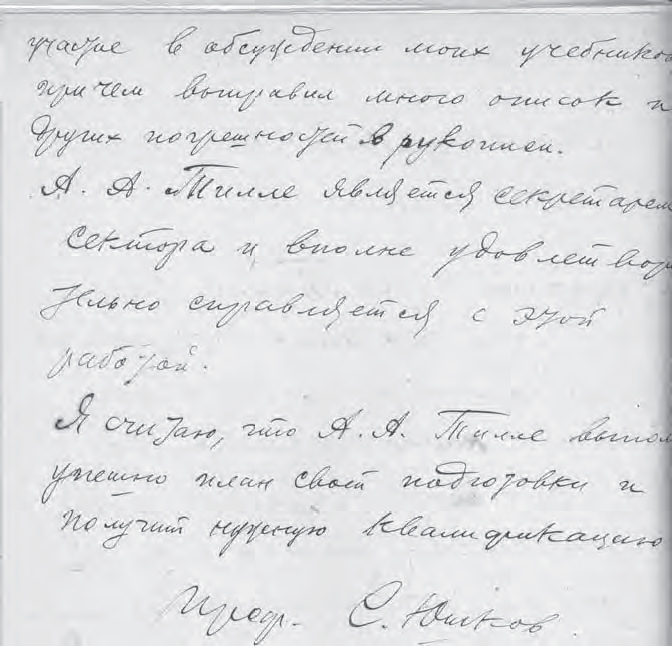 участие в обсуждении моих учебников
причем выправил много описок и
других погрешностей в рукописи.
А. А. Тилле является секретарем
сектора и вполне удовлетвори
тельно справляется с этой
работой.
Я считаю, что А. А. Тилле выпол
успешно план своей подготовки и
получит нужную квалификацию
Проф. С. Юшков.